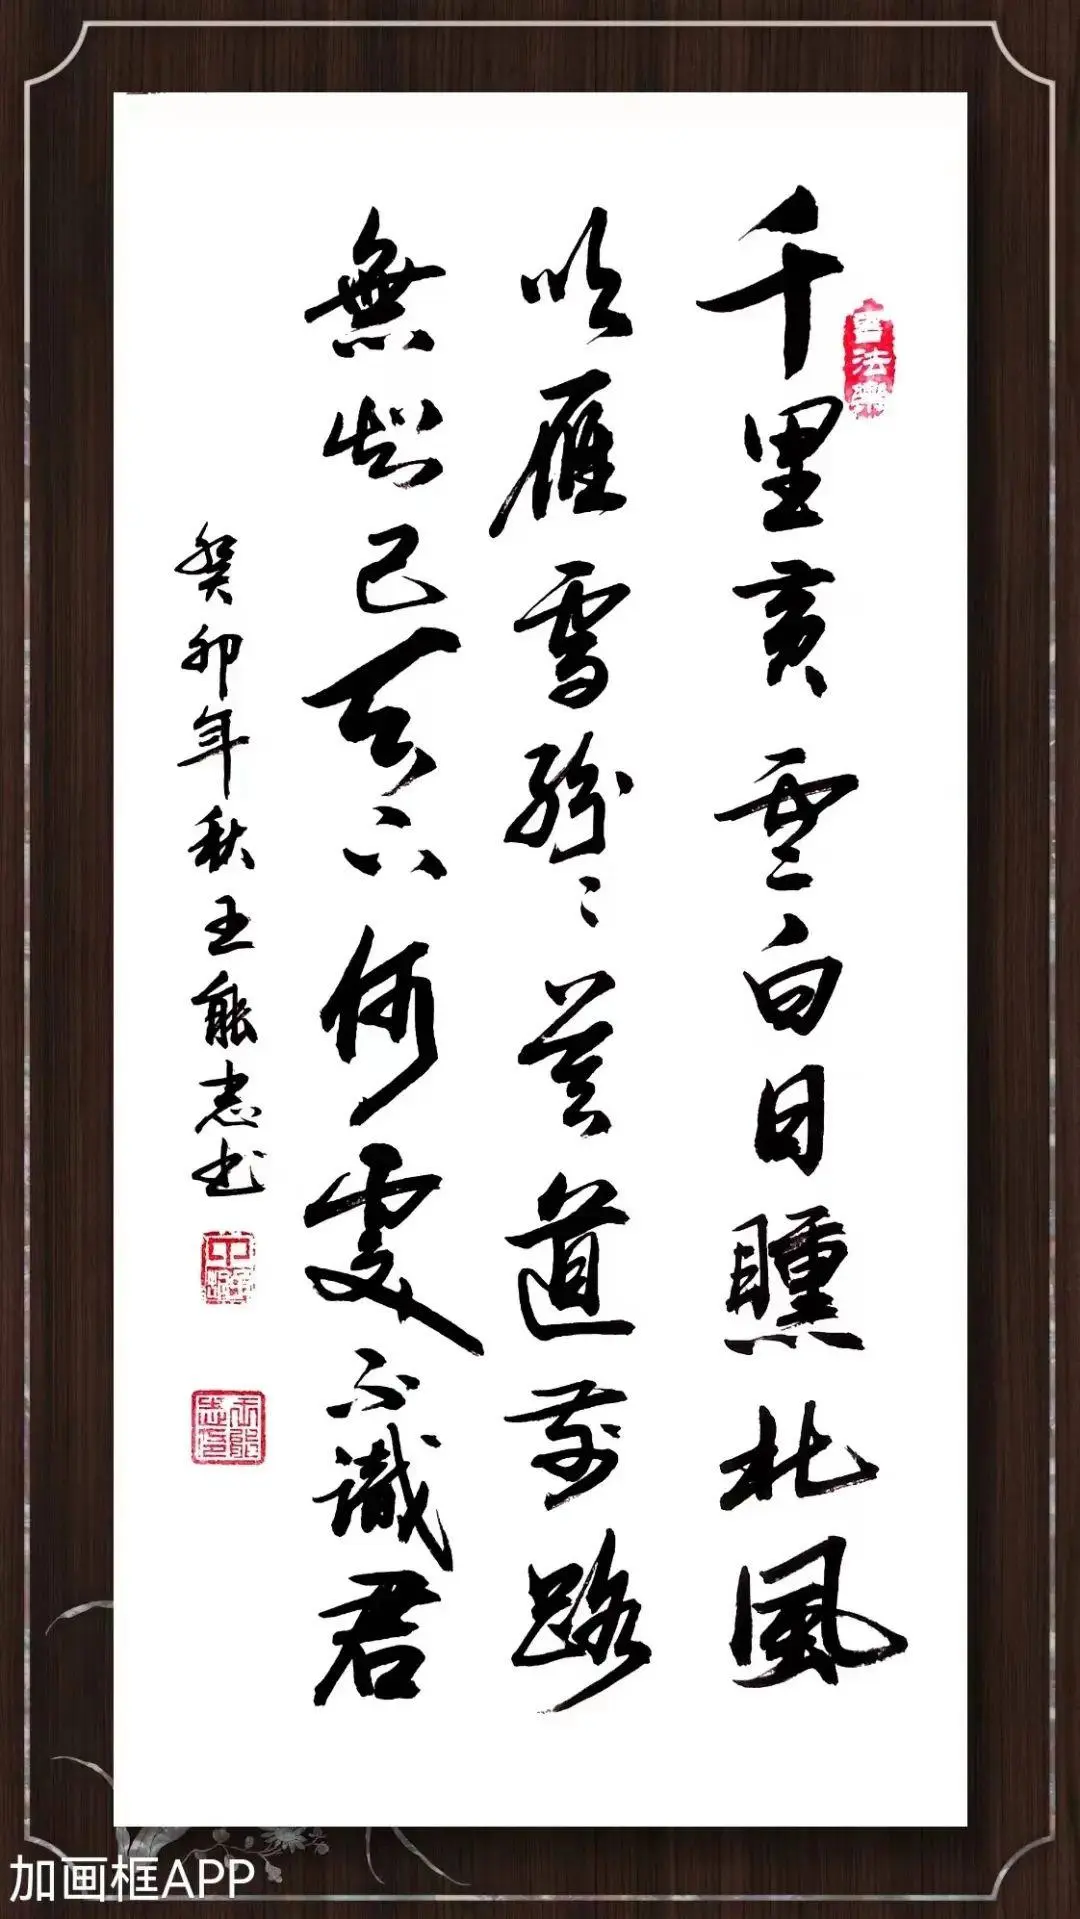 千里黄雲白日曛北風
吹雁雪紛〻莫道前路
無知己天下何處不識君
癸卯年秋王能志书
書法樂
王能志印
加画框APP